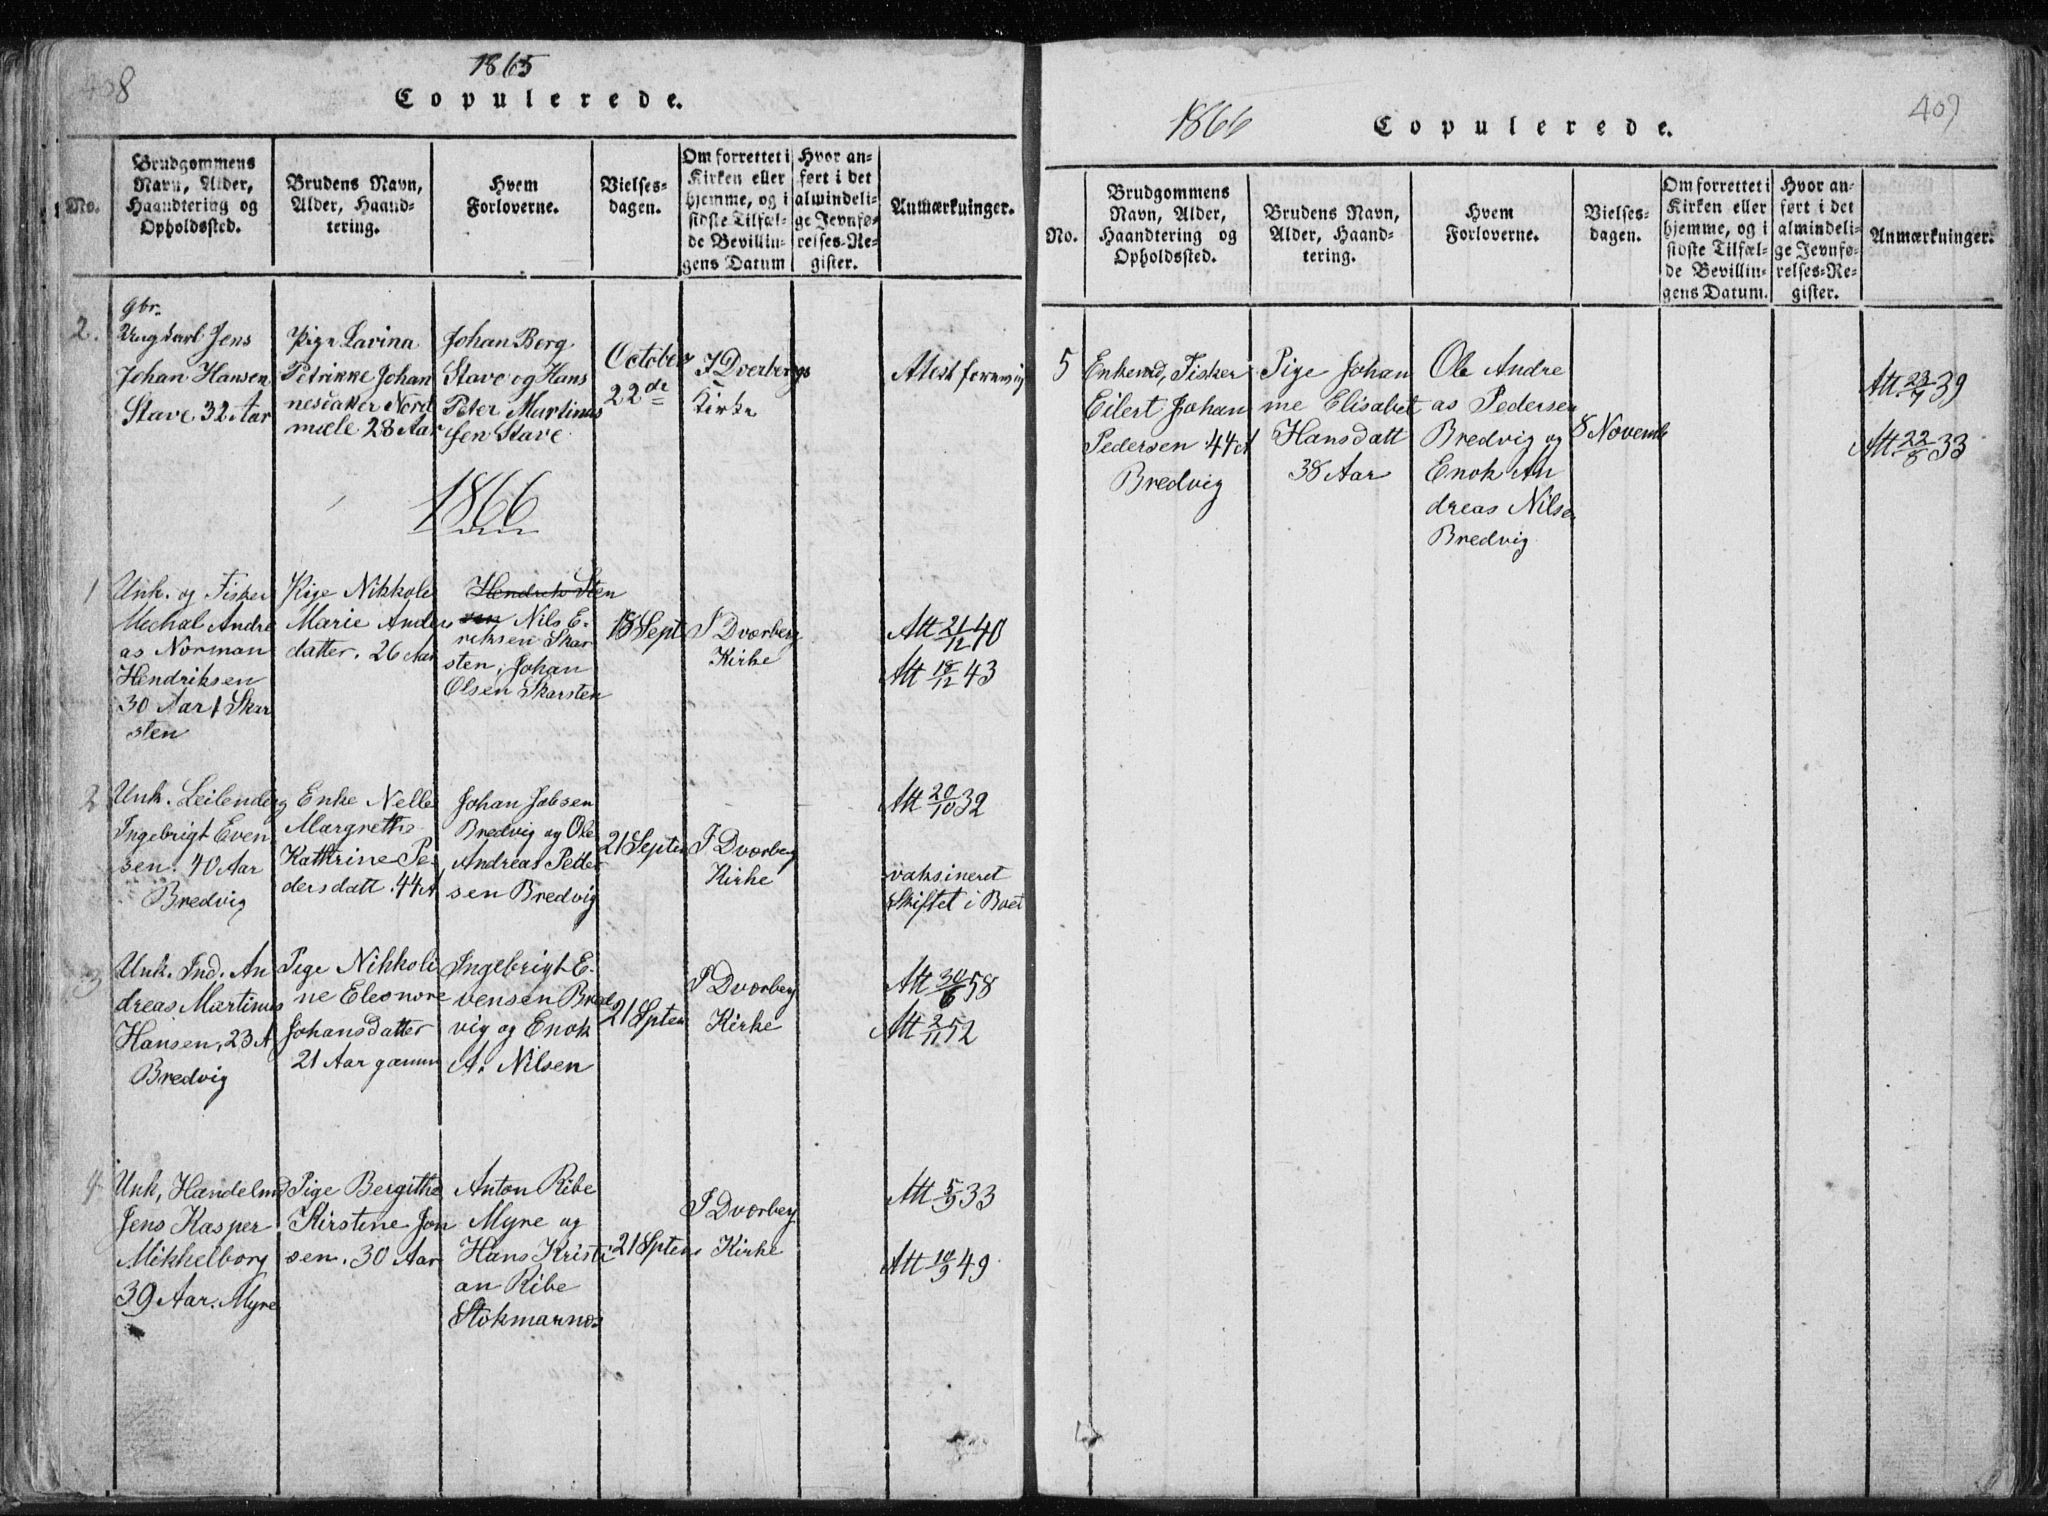 408
1865
Copulerede.
No.
Brudgommens
Navn, Alder,
Haandtering og
Opholdssted.
Brudens Navn,
Alder, Haand-
tering.
Hvem
Forloverne.
Vielses-
dagen.
Om forrettet i
Kirken eller
hjemme, og i
sidste Tilfæl-
de Bevillin-
gens Datum
Hvor an-
ført i det
almindeli-
ge Jevnfø-
relses-Re-
gister.
Anmærkninger.
2.
gbr.
Ungkarl Jens
Johan Hansen
Stave 32 Aar
Pige Lavina
Petrikke Johan
nesdatter Nord
miele 28 Aar
Johan Berg
Stave og Hans
Peter Martinus
sen Stave
October
22de
I Dverbergs
Kirke
Attest
1866
1
Unk. og Fisker
Mechal Andre
as Norman
Hendriksen
30 Aar, Skar
sten
Pige Nikkoli
Marie Anders
datter. 26 Aar
Hendrik Sten
sen Nils E-
riksen Skar
sten, Johan
Olsen Skarsten
18 Sept
I Dværberg
Kirke
Att 21/12 40
Att 18/12 43
2
Unk. Leilending
Ingebrigt Even
sen. 40 Aar
Bredvig
Enke Nelle
Margrethe
Kathrine Pe
dersdatt. 44 A
Johan Jobsen
Bredvig og Ole
Andreas Peder
sen Bredvig
21 Septem
I Dværberg
Kirke
Att 20/10 32
vaksineret
Skiftet i Boet
3
Unk. Ind. An
dreas Martinus
Hansen, 23 A
Bredvig
Pige Nikkoli
ne Eleonore
Johansdatter
21 Aar gamm
Ingebrigt E-
vensen Bred
vig og Enok
A. Nilsen
21 Septem
I Dværberg
Kirke
Att 30/6 58
Att 2/11 52
4
Unk, Handelmd
Jens Kasper
Mikkelborg
39 Aar. Myre
Pige Bergitha
Kirstine Jon
sen. 30 Aar
Anton Ribe
Myre og
Hans Kristi
an Ribe
Stokmarnos
21 Sptem
I Dværberg
Kirke
Att 5/9 33
Att 10/9 49
409
1866
Copulerede.
No.
Brudgommens
Navn, Alder,
Haandtering og
Opholdssted.
Brudens Navn,
Alder, Haand-
tering.
Hvem
Forloverne.
Vielses-
dagen.
Om forrettet i
Kirken eller
hjemme, og i
sidste Tilfæl-
de Bevillin-
gens Datum.
Hvor an-
ført i det
almindeli-
ge Jevnfø-
relses-Re-
gister.
Anmærkninger.
5
Enkemd, Fisker
Eilert Johan
Pedersen 44 A
Bredvig
Pige Johan
me Elisabet
Hansdatt
38 Aar
Ole Andre
as Pedersen
Bredvig og
Enok An
dreas Nilsen
Bredvig
8 Novemb
Att 23/7 39
Att 22/8 33